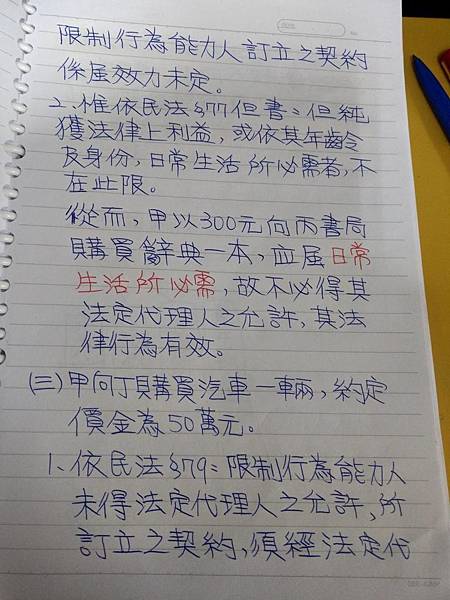 限制行為能力人訂立之契約
係屬效力未定。
2、惟依民法§77但書：但純
獲法律上利益，或依其年齡
及身份，日常生活所必需者，不
在此限。
從而，甲以300元向丙書局
購買辭典一本，應屬日常
生活所必需，故不必得其
法定代理人之允許，其法
律行為有效。
(三)甲向丁購買汽車一輛，約定
價金為50萬元。
1、依民法§79：限制行為能力人
未得法定代理人之允許，所
訂立之契約，須經法定代